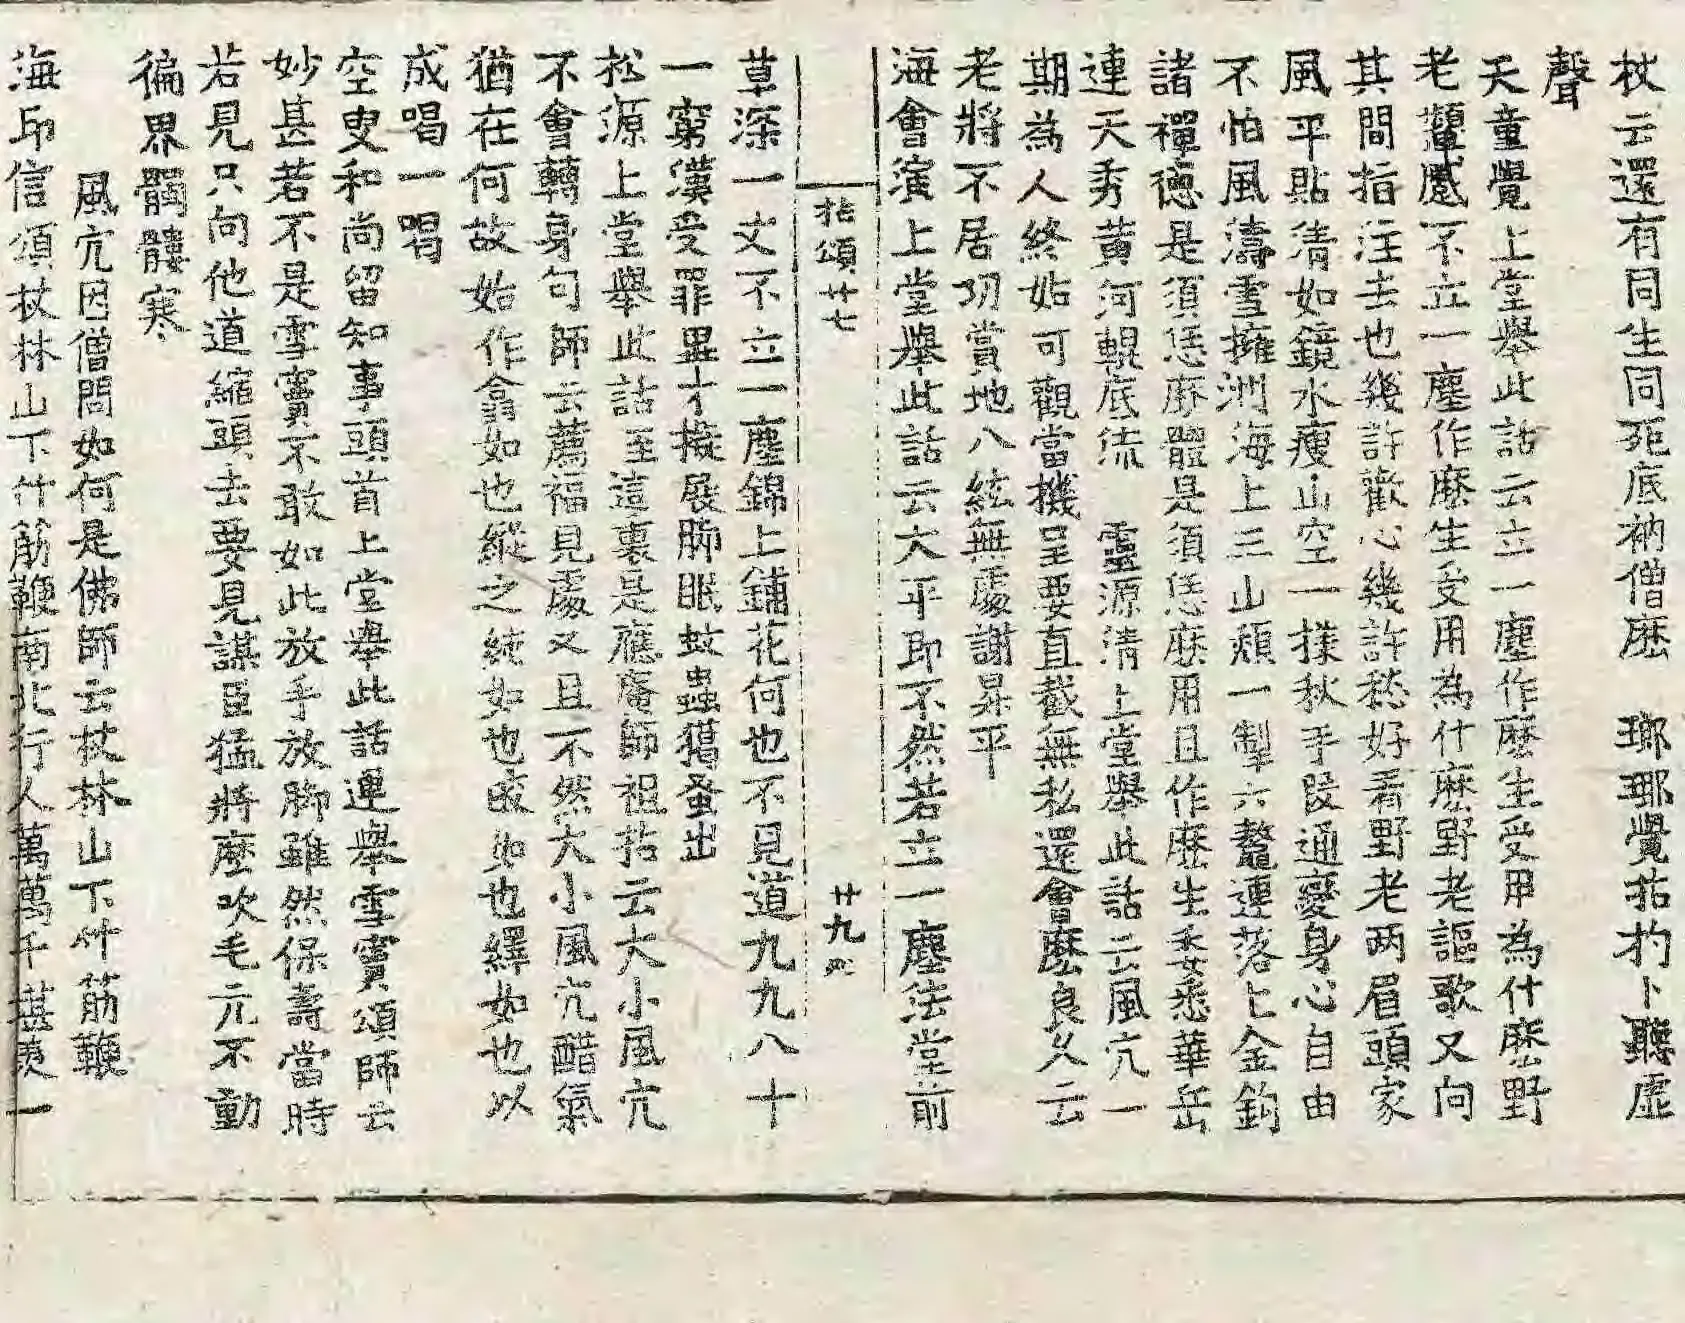 杖云還有同生同死底衲僧麽　瑯瑘覺拈杓卜聽虛
聲
天童覺上堂擧此話云立一塵作麽生受用為什麽野
老顰蹙不立一塵作麽生受用為什麽野老謳歌又向
其間指注去也幾許歡心幾許愁好看野老兩眉頭家
風平貼清如鏡水瘦山空一㨾秋手段通變身心自由
不怕風濤雪擁洲海上三山頻一掣六鼇連落上金鈎
諸禪德是須恁麽體是須恁麽用且作麽生委悉華岳
連天秀黄河輥底流　靈源清上堂擧此話云風穴一
期為人終始可觀當機呈要直截無私還會麽良久云
老將不居功賞地八紘無處謝昇平
海會演上堂擧此話云大平即不然若立一塵法堂前
拈頌廿七　廿九
草深一丈不立一塵錦上鋪花何也不見道九九八十
一窮漢受罪畢才擬展脚眠蚊蟲獦蚤出
松源上堂擧此話至這裏是應庵師祖拈云大小風穴
不會轉身句師云薦福見處又且不然大小風穴醋氣
猶在何故始作翕如也縱之純如也皦如也繹如也以
成喝一喝
空叟和尚留知事頭首上堂擧此話連擧雪竇頌師云
妙甚若不是雪竇不敢如此放手放脚雖然保壽當時
若見只向他道縮頭去要見謀臣猛將麽吹毛元不動
徧界髑髏寒
風穴因僧問如何是佛師云杖林山下竹筋鞭
海印信頌杖林山下竹筋鞭南北行人萬萬千甚處一